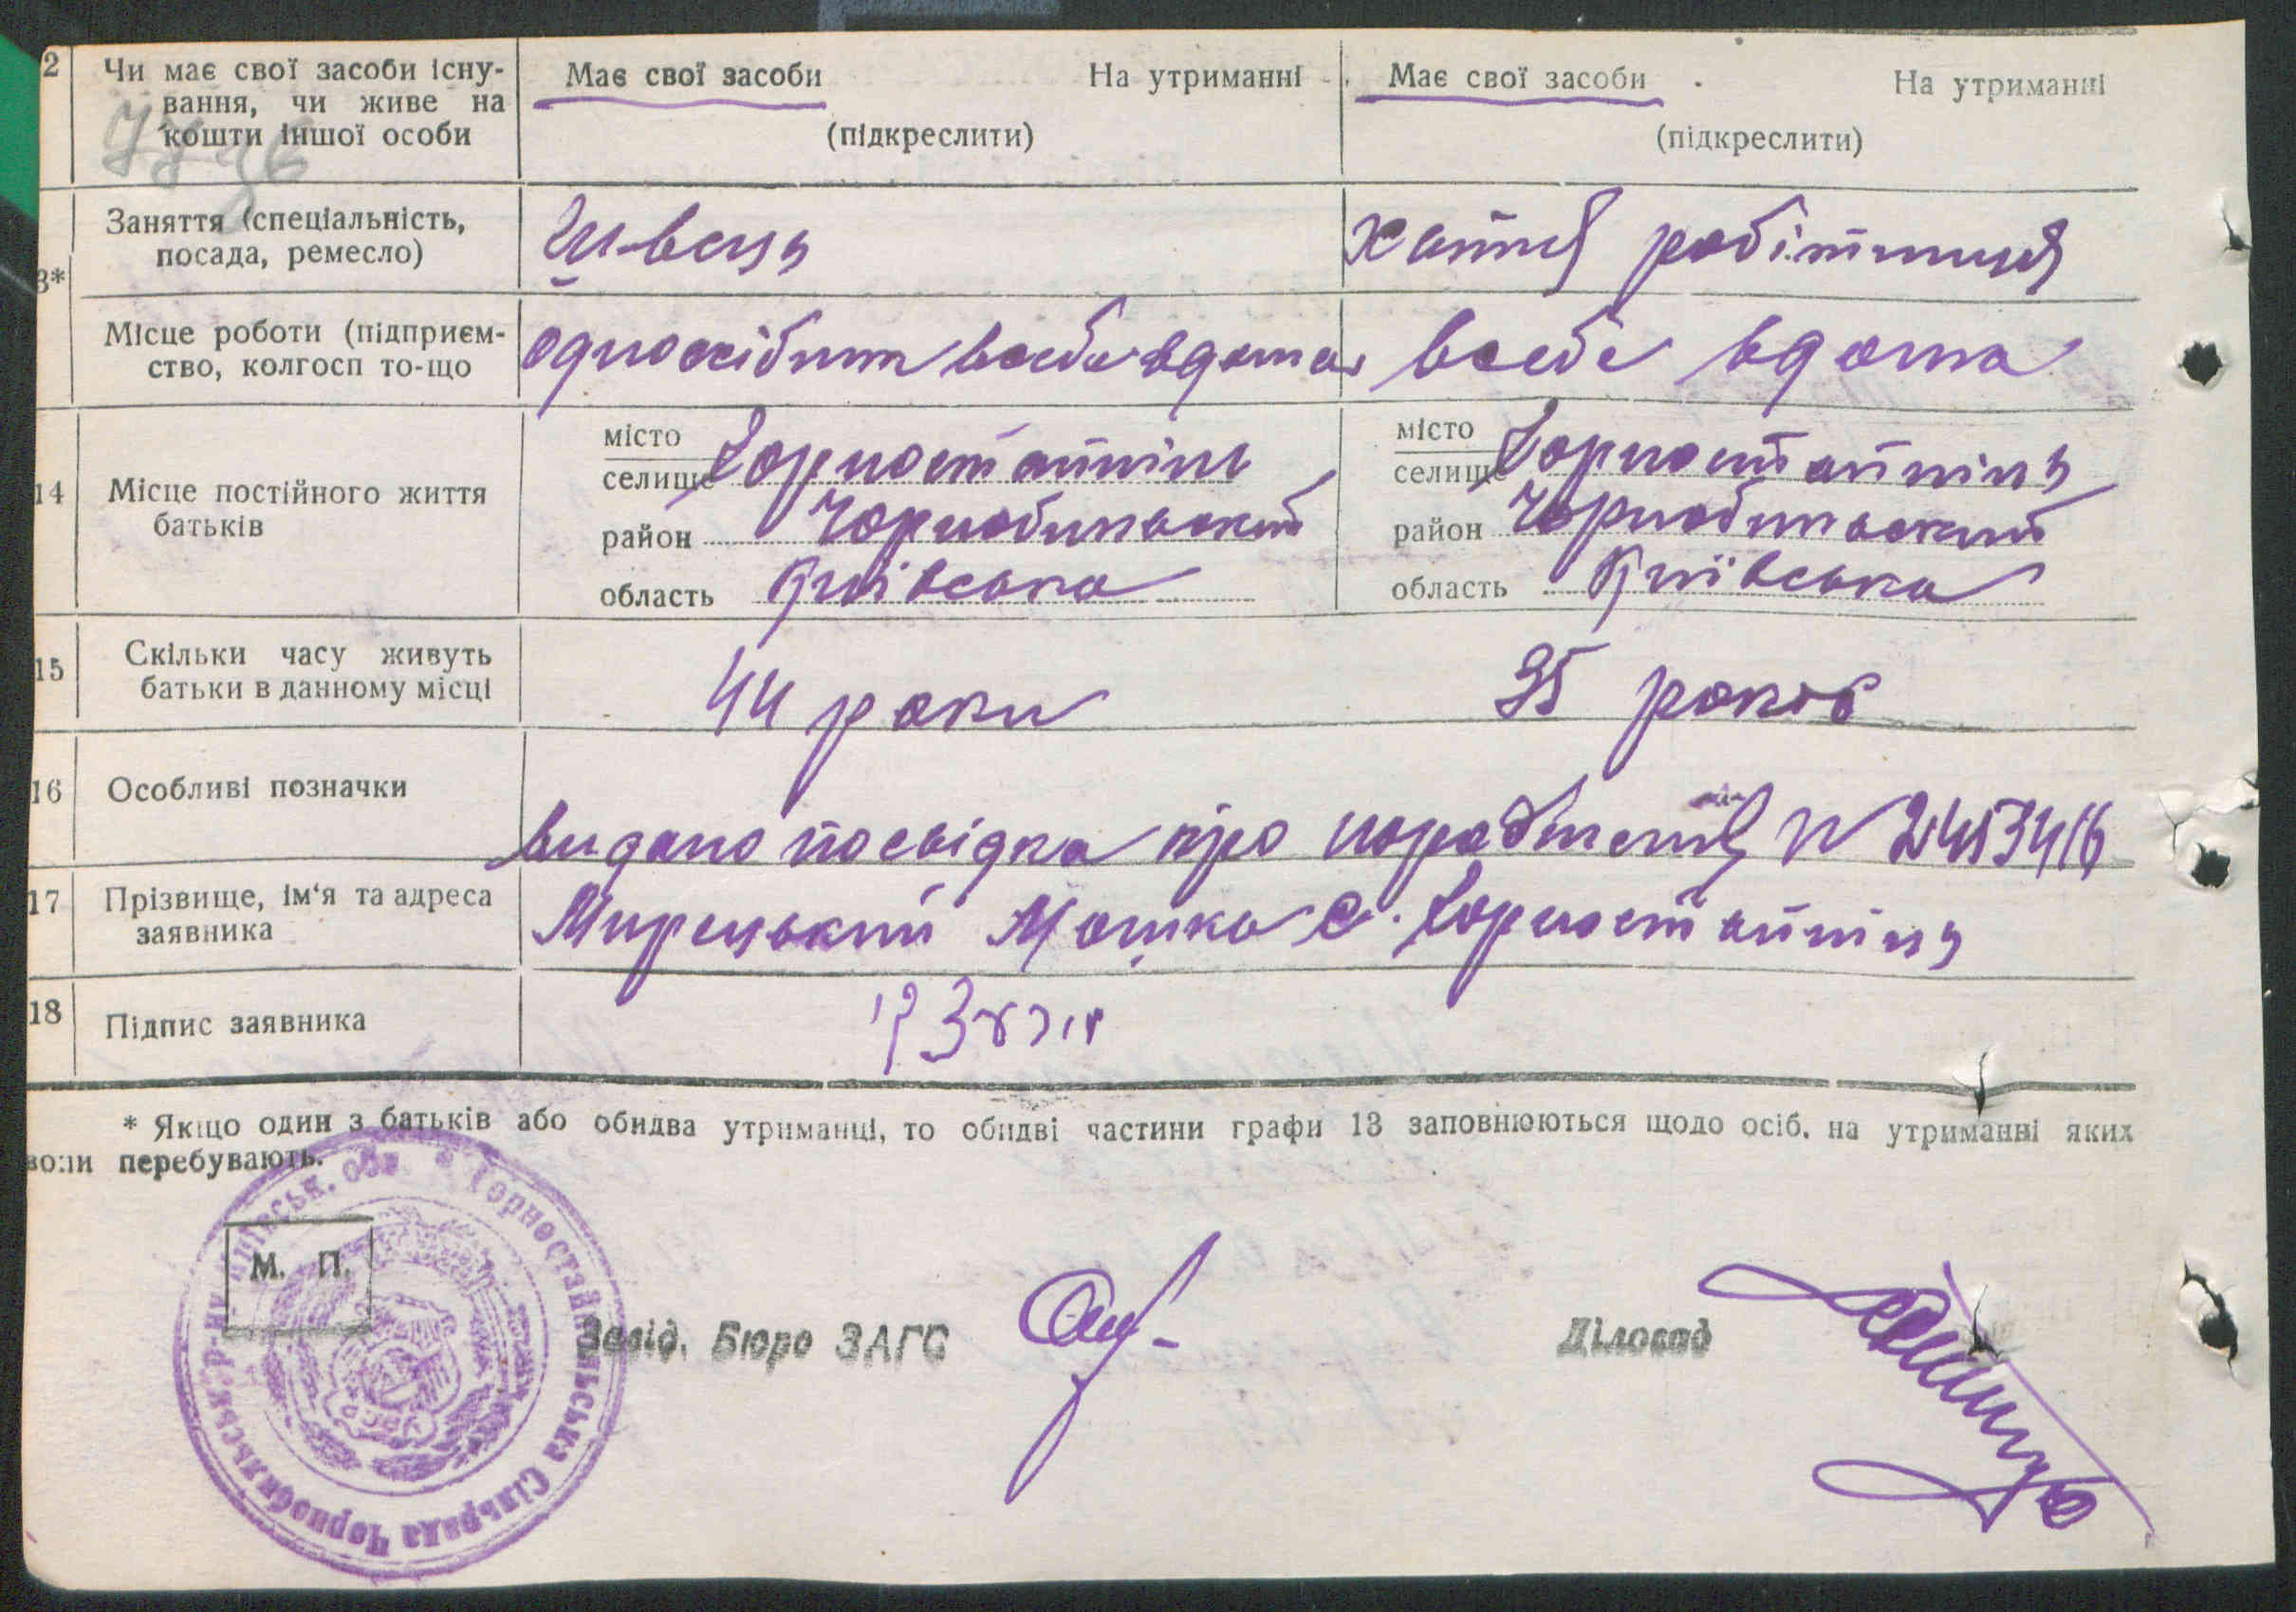 2 Чи має свої засоби існу-
вання, чи живе на
кошти іншої особи
Має свої засоби На утриманні
(підкреслити)
Має свої засоби На утриманні
(підкреслити)
3*
Заняття (спеціальність,
посада, ремесло)
Швець
Хатня робітниця
Місце роботи (підприєм-
ство, колгосп то-що
односібник в себе вдома
в себе вдома
14 Місце постійного життя
батьків
місто
селище Горностайпіль
район Чорнобильський
область Київська
місто
селище Горностайпіль
район Чорнобильський
область Київська
15 Скільки часу живуть
батьки в данному місці
44 роки
35 років
16 Особливі позначки
видано посвідка про народження N
17 Прізвище, ім‘я та адреса
заявника
Мирецький Мошко с. Горностайпіль
18 Підпис заявника
* Якщо один з батьків або обидва утриманці, то обидві частини графи 13 заповнюються щодо осіб, на утриманні яких
вони перебувають.
Горностайпільська Сільрада Чорнобильськ. р-ну Київськ. обл.
М. П.
Завід. Бюро ЗАГС
Діловод